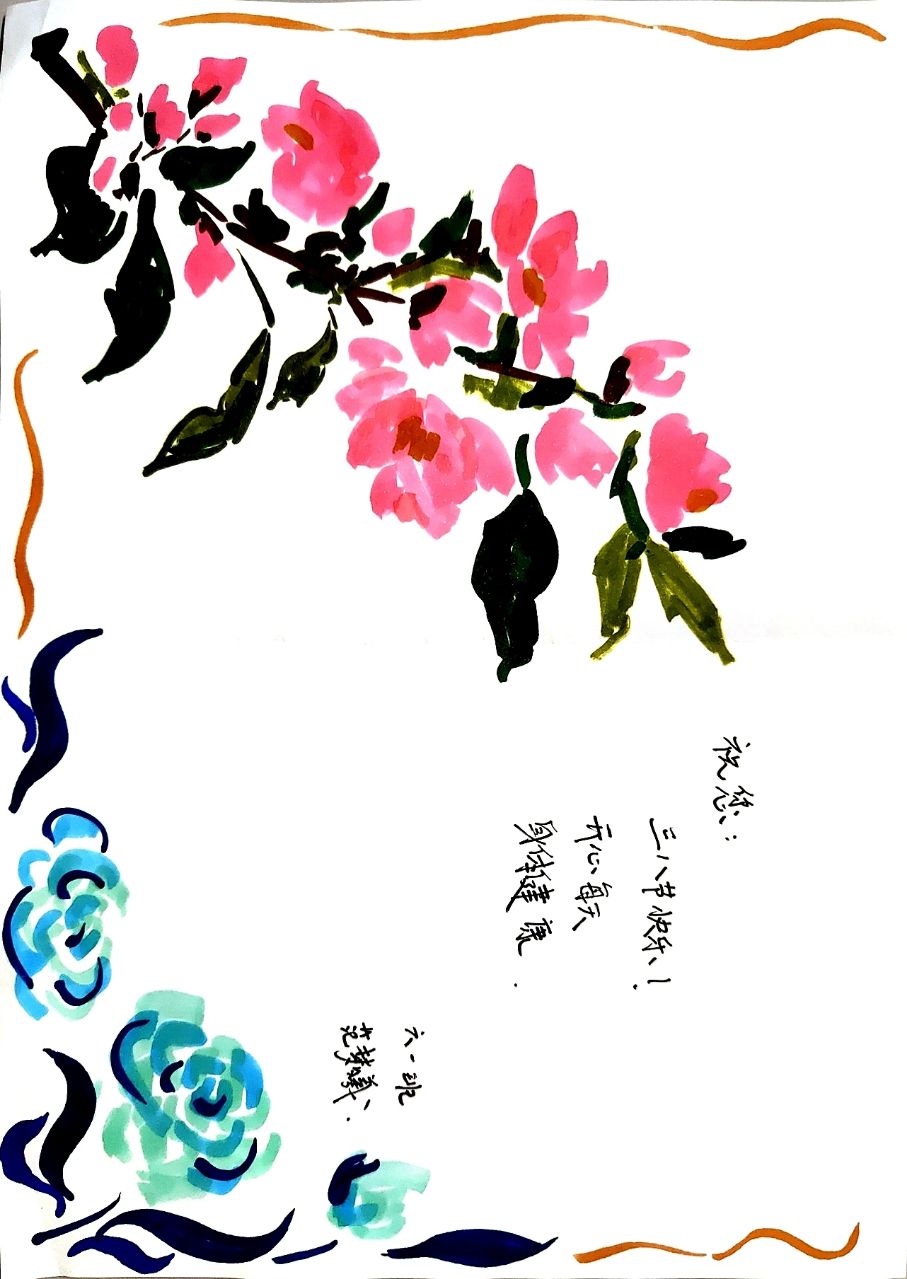 祝您：
三八节快乐！
开心每天
身体健康.
六一班
范梦曦